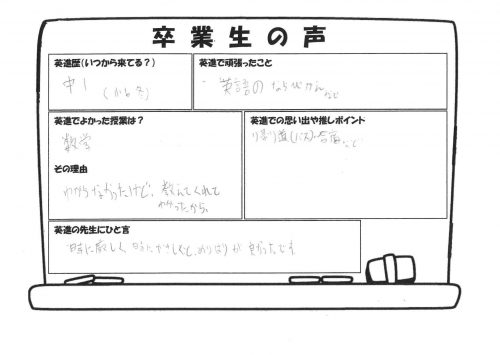 卒業生の声
英進歴(いつから来てる?)
中1
英進で頑張ったこと
英語の ならびかえ など
英進でよかった授業は?
数学
その理由
わからなかったけど、教えてくれて
わかったから。
英進での思い出や推しポイント
合宿など
英進の先生にひと言
時に厳しく 時にやさしくと、めりはりが 良かったです